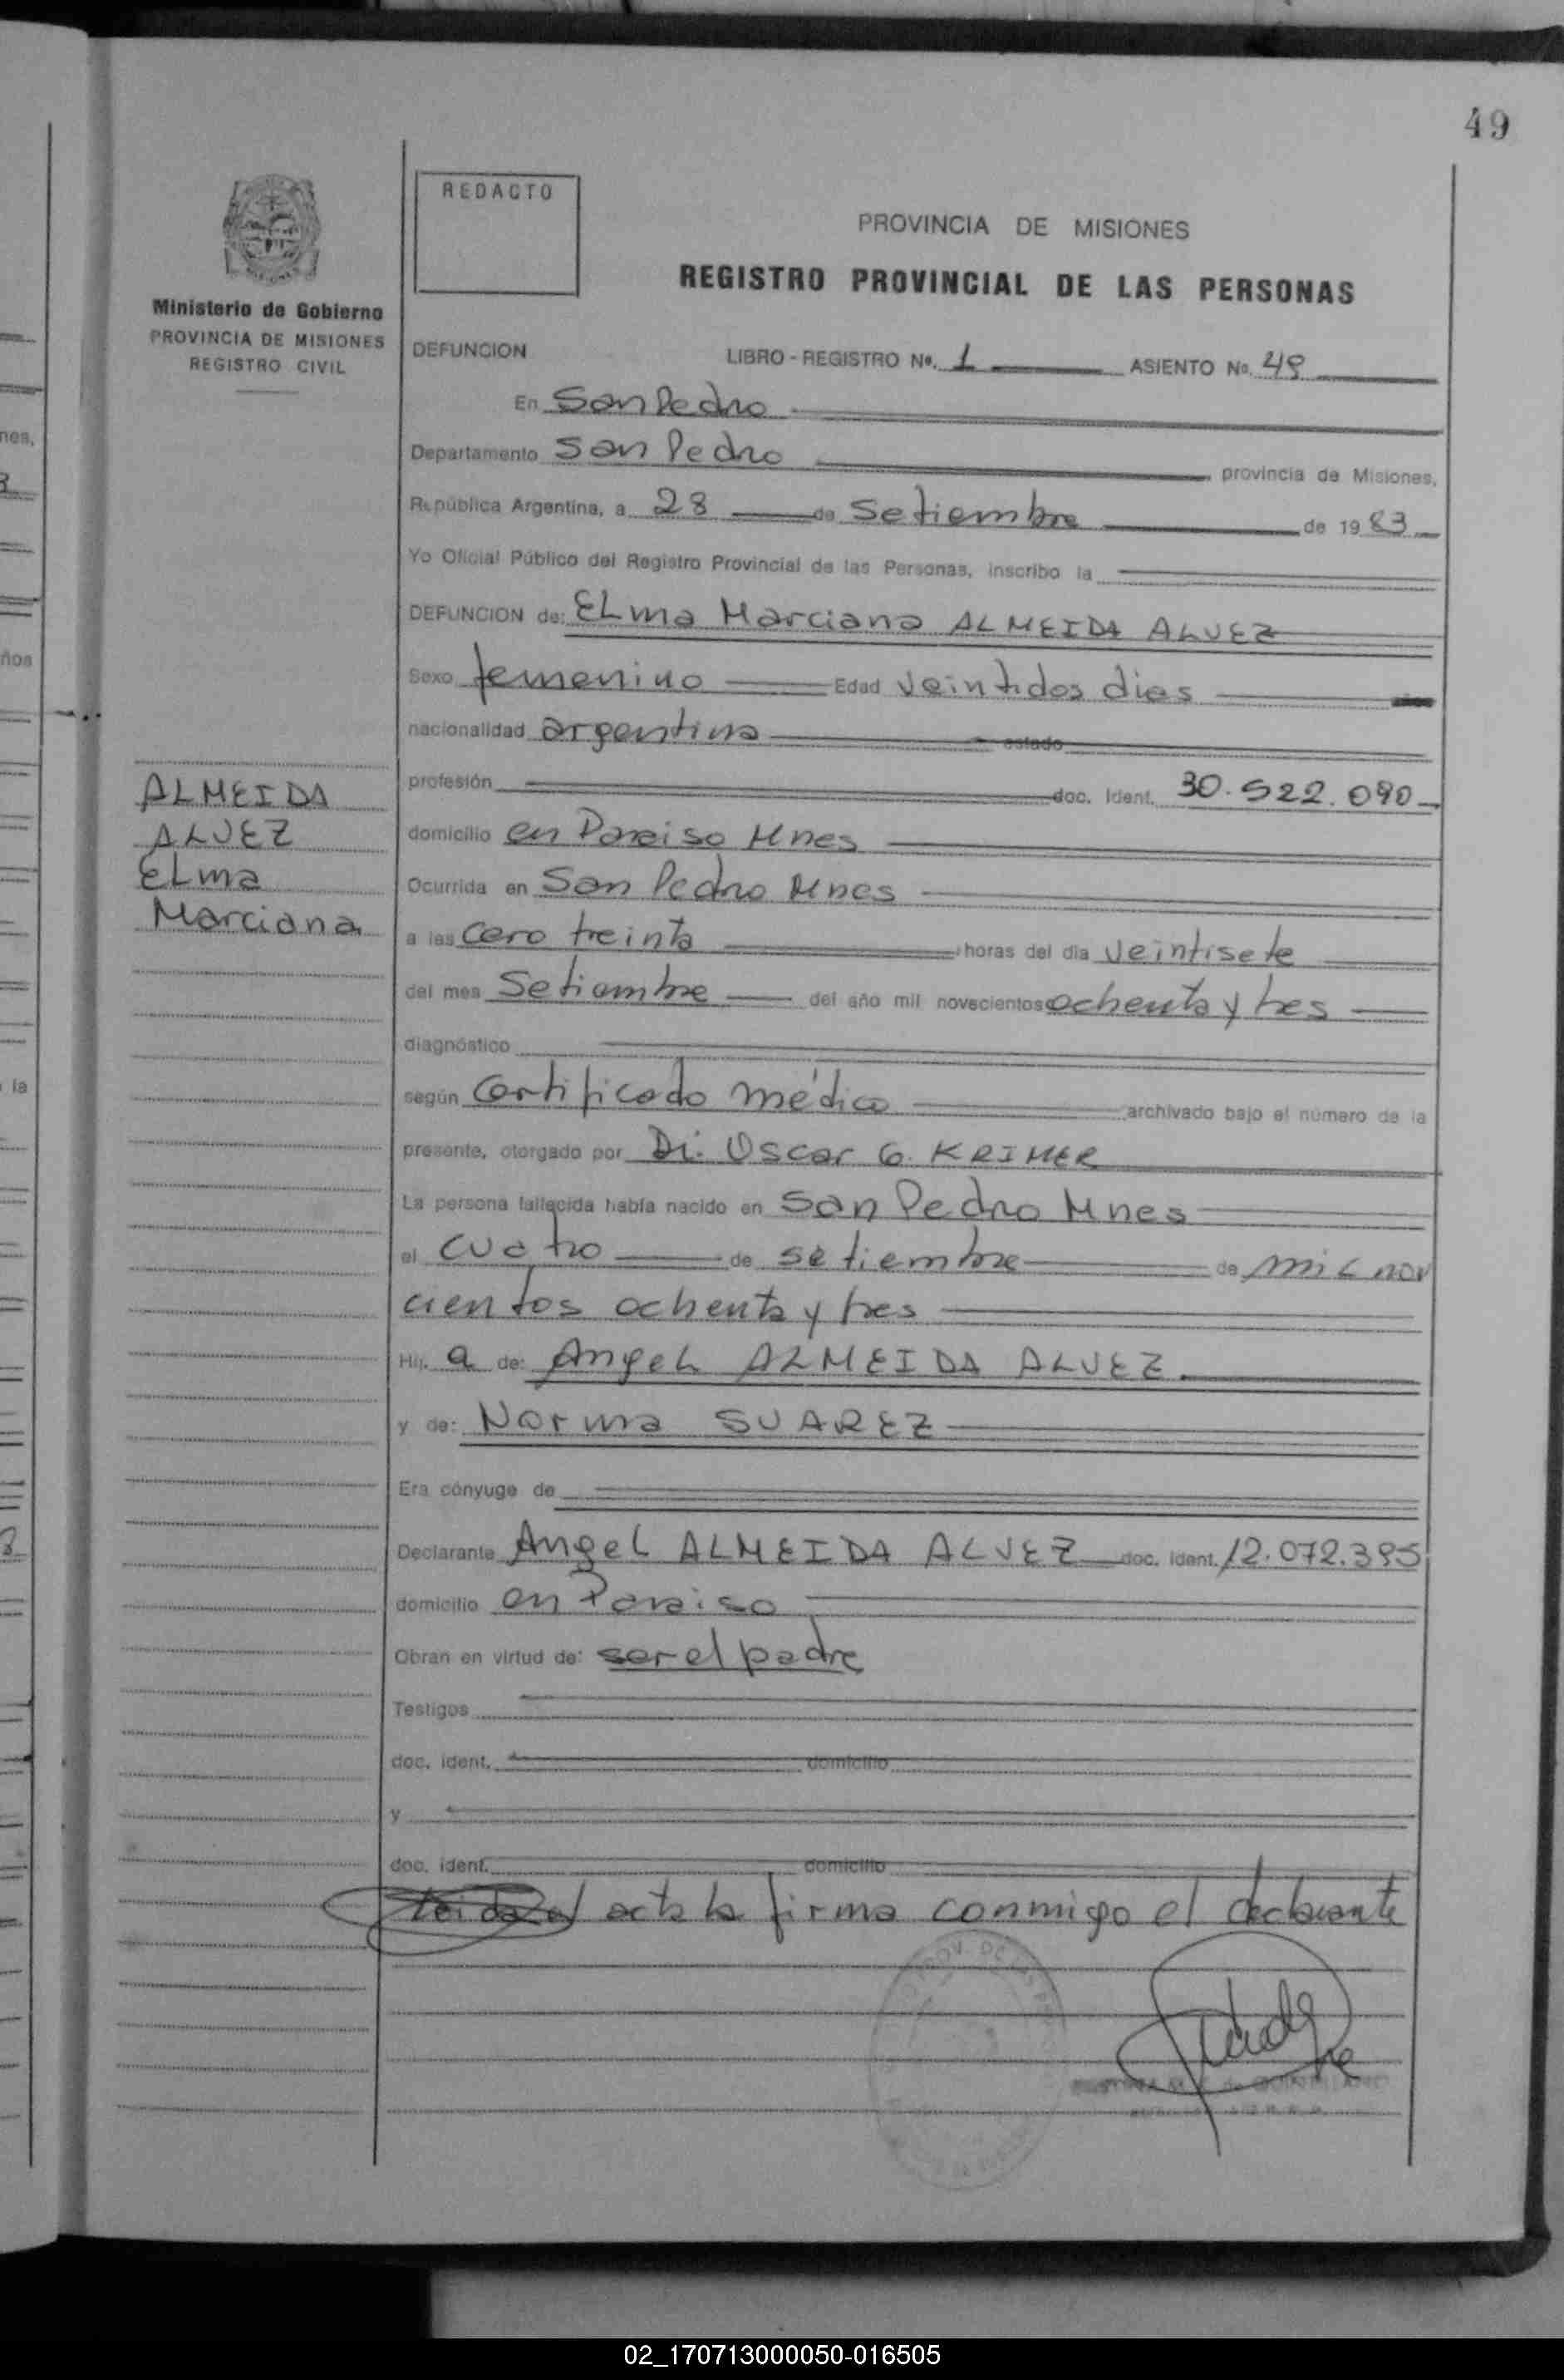 49
REDACTO
PROVINCIA DE MISIONES
REGISTRO PROVINCIAL DE LAS PERSONAS
Ministerio de Gobierno
PROVINCIA DE MISIONES
REGISTRO CIVIL
DEFUNCION LIBRO - REGISTRO No. 1 ASIENTO No. 49
En San Pedro
Departamento San Pedro provincia de Misiones,
República Argentina, a 28 de Setiembre de 1983
Yo Oficial Público del Registro Provincial de las Personas, inscribo la
DEFUNCION de: ELma Marciana ALMEIDA ALVEZ
Sexo femenino Edad veintidos dias
nacionalidad argentina estado
profesión doc. Ident. 30.522.090
domicilio en Paraiso Mnes
Ocurrida en San Pedro Mnes
a las cero treinta horas del día veintisete
del mes Setiembre del año mil novecientos ochenta y tres
diagnóstico
según Certificado médico archivado bajo el número de la
presente, otorgado por Dr. Oscar G. KRIMER
La persona fallecida había nacido en San Pedro Mnes
el cuatro de setiembre de mil nov
cientos ochenta y tres
Hij a de: Angel ALMEIDA ALVEZ
y de: Norma SUAREZ
Era cónyuge de
Declarante Angel ALMEIDA ALVEZ doc. Ident. 12.072.395
domicilio en Paraiso
Obran en virtud de: ser el padre
Testigos
doc. ident. domicilio
y
doc. ident. domicilio
acta la firma conmigo el declarante
ALMEIDA
ALVEZ
ELma
Marciana
02_170713000050-016505